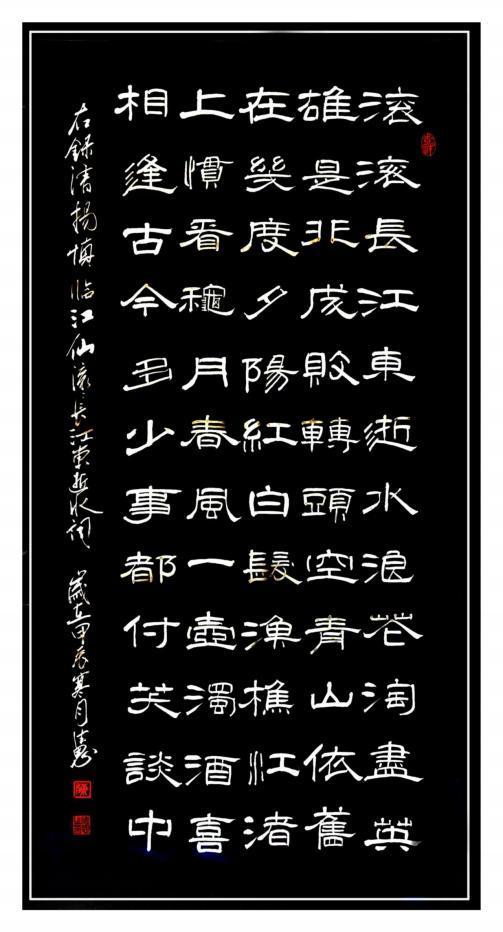 滚滚長江東逝水浪花淘盡英
雄是非成敗轉頭空青山依舊
在幾度夕陽紅白髮漁樵江渚
上慣看龝月春風一壺濁酒喜
相逢古今多少事都付笑談中
右録清揚慎临江仙滚長江東逝水詞 歲在甲辰寒月